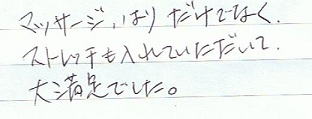 マッサージ、はりだけでなく、
ストレッチも入れていただいて、
大満足でした。